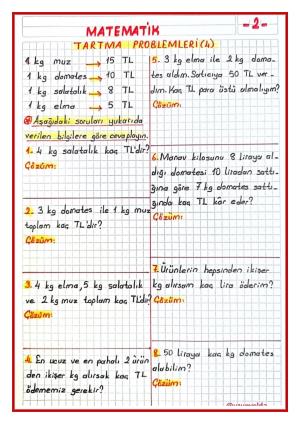 MATEMATİK
-2-
TARTMA PROBLEMLERİ(4)
1 kg muz → 15 TL
1 kg domates → 10 TL
1 kg salatalık → 8 TL
1 kg elma → 5 TL
Aşağıdaki soruları yukarıda
verilen bilgilere göre cevaplayın.
1. 4 kg salatalık kaç TL'dir?
Çözüm:
2. 3 kg domates ile 1 kg muz
toplam kaç TL'dir?
Çözüm:
3. 4 kg elma, 5 kg salatalık
ve 2 kg muz toplam kaç TL'dir?
Çözüm:
4. En ucuz ve en pahalı 2 ürün
den ikişer kg alırsak kaç TL
ödememiz gerekir?
5. 3 kg elma ile 2 kg doma-
tes aldım. Satıcıya 50 TL ver-
dim. Kaç TL para üstü almalıyım?
Çözüm:
6. Manav kilosunu 8 liraya al-
dığı domatesi 10 liradan sattı-
ğına göre 7 kg domates sattı-
ğında kaç TL kâr eder?
Çözüm:
7. Ürünlerin hepsinden ikişer
kg alırsam kaç lira öderim?
Çözüm:
8. 50 liraya kaç kg domates
alabilirim?
Çözüm: